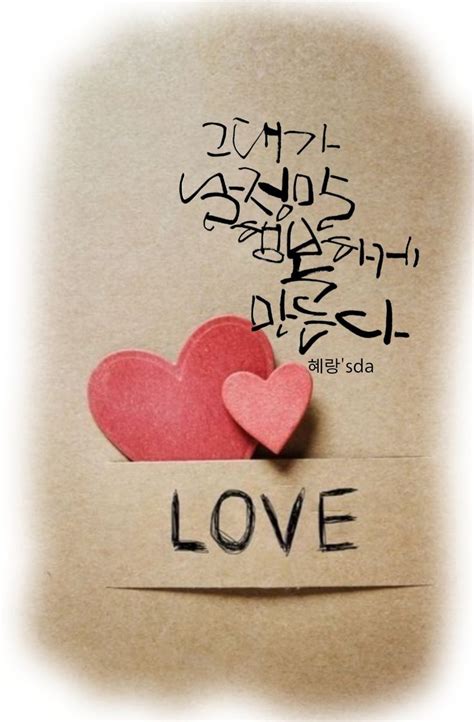 그대가
날 정말
행복하게
만든다
혜랑'sda
LOVE